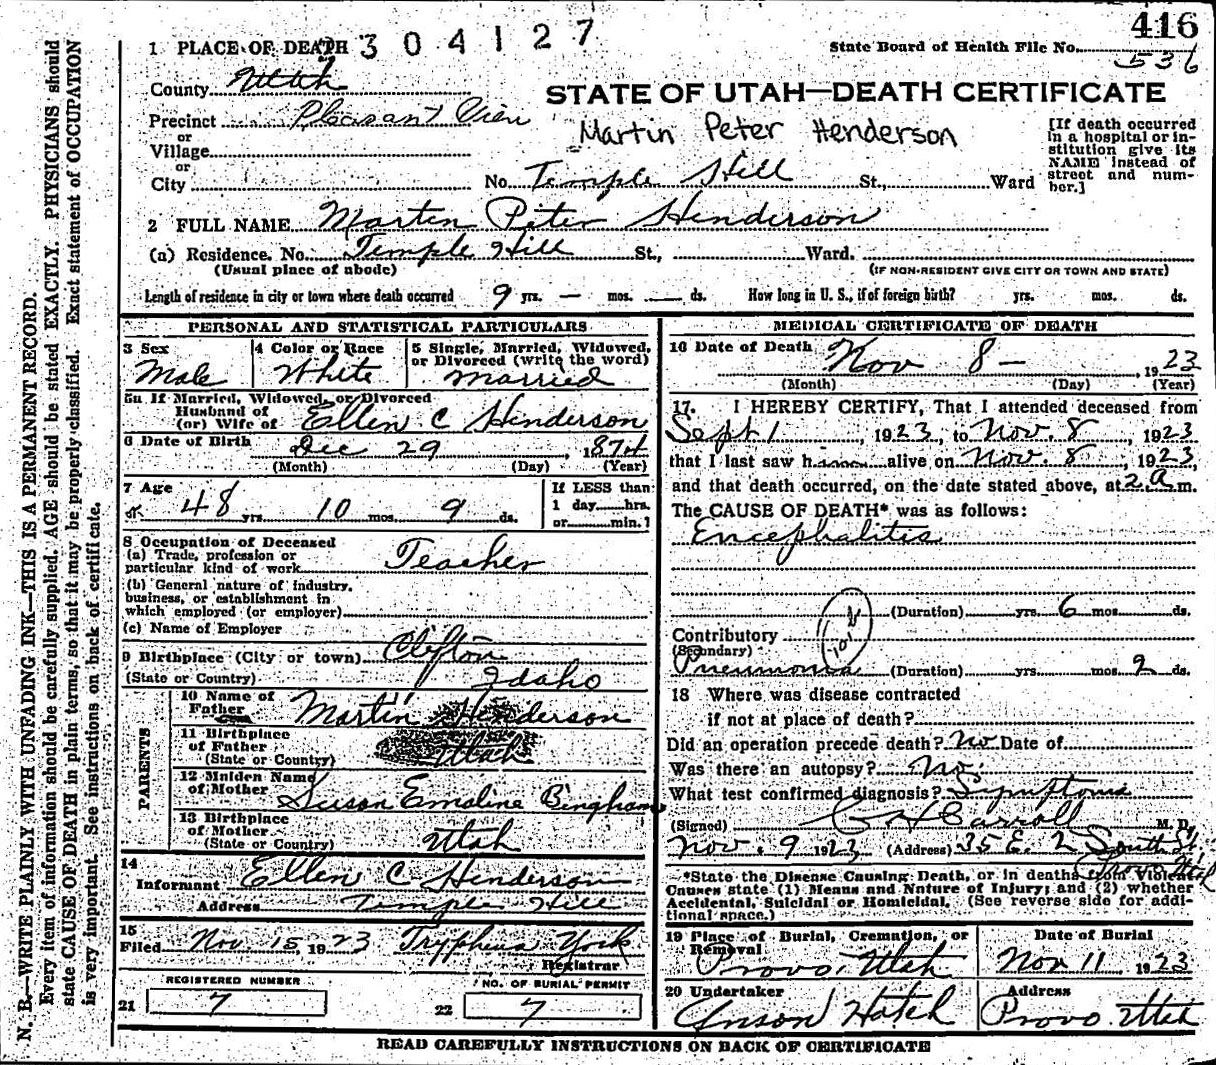 416
2304127
State Board of Health File No. 536
1 PLACE OF DEATH
County Utah
STATE OF UTAH—DEATH CERTIFICATE
Precinct Pleasant View
Martin Peter Henderson
or
Village
or
City
No. Temple Hill St., Ward
[If death occurred
in a hospital or in-
stitution give its
NAME instead of
street and num-
ber.]
2 FULL NAME Martin Peter Henderson
(a) Residence. No. Temple Hill St., Ward.
(Usual place of abode)
(IF NON-RESIDENT GIVE CITY OR TOWN AND STATE)
Length of residence in city or town where death occurred 9 yrs. — mos. — ds. How long in U. S., if of foreign birth? yrs. mos. ds.
PERSONAL AND STATISTICAL PARTICULARS
3 Sex
Male
4 Color or Race
White
5 Single, Married, Widowed,
or Divorced (write the word)
Married
5a If Married, Widowed, or Divorced
Husband of
(or) Wife of Ellen C Henderson
6 Date of Birth Dec 29, 1874
(Month) (Day) (Year)
7 Age
48 yrs. 10 mos. 9 ds.
If LESS than
1 day......hrs.
or......min.]
8 Occupation of Deceased
(a) Trade, profession or
particular kind of work Teacher
(b) General nature of industry,
business, or establishment in
which employed (or employer)
(c) Name of Employer
9 Birthplace (City or town) Clifton
(State or Country) Idaho
PARENTS
10 Name of
Father Martin Henderson
11 Birthplace
of Father
(State or Country) Utah
12 Maiden Name
of Mother Susan Emaline Bingham
13 Birthplace
of Mother
(State or Country) Utah
14
Informant Ellen C Henderson
Address Temple Hill
15
Filed Nov 15, 1923 Tryphena York
Registrar
REGISTERED NUMBER
21 7
NO. OF BURIAL PERMIT
22 7
MEDICAL CERTIFICATE OF DEATH
16 Date of Death Nov 8 — , 1923
(Month) (Day) (Year)
17. I HEREBY CERTIFY, That I attended deceased from
Sept 1, 1923, to Nov. 8, 1923
that I last saw h alive on Nov. 8, 1923,
and that death occurred, on the date stated above, at 2 a.m.
The CAUSE OF DEATH* was as follows:
Encephalitis
(Duration) yrs. 6 mos. ds.
Contributory
(Secondary)
Pneumonia (Duration) yrs. mos. 2 ds.
18 Where was disease contracted
if not at place of death?
Did an operation precede death? No Date of
Was there an autopsy? No
What test confirmed diagnosis? Symptoms
(Signed) C H Carroll M. D.
Nov. 9 1923 (Address) 35 E. 2 South St,
Provo Utah
*State the Disease Causing Death, or in deaths from Violent
Causes state (1) Means and Nature of Injury; and (2) whether
Accidental, Suicidal or Homicidal. (See reverse side for addi-
tional space.)
19 Place of Burial, Cremation, or
Removal
Provo, Utah
Date of Burial
Nov 11, 1923
20 Undertaker
Anson Hatch
Address
Provo Utah
READ CAREFULLY INSTRUCTIONS ON BACK OF CERTIFICATE
N. B.—WRITE PLAINLY WITH UNFADING INK—THIS IS A PERMANENT RECORD.
Every item of information should be carefully supplied. AGE should be stated EXACTLY. PHYSICIANS should
state CAUSE OF DEATH in plain terms, so that it may be properly classified. Exact statement of OCCUPATION
is very important. See instructions on back of certificate.